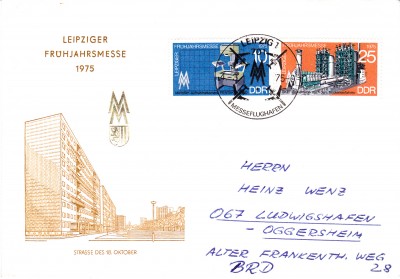 LEIPZIGER
FRÜHJAHRSMESSE
1975
LEIPZIGER FRÜHJAHRSMESSE 1975
10
DDR
LEIPZIGER FRÜHJAHRSMESSE 1975
25
DDR
LEIPZIG 1
MESSEFLUGHAFEN
STRASSE DES 18. OKTOBER
HERRN
HEINZ WENZ
067 LUDWIGSHAFEN
-OGGERSHEIM
ALTER FRANKENTH. WEG
28
BRD